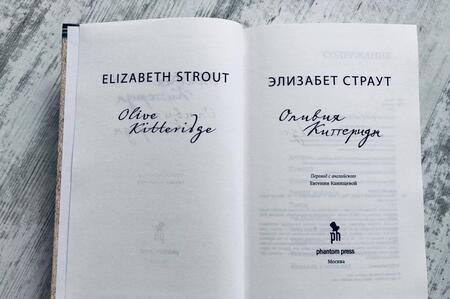 ELIZABETH STROUT
Olive
Kitteridge
ЭЛИЗАБЕТ СТРАУТ
Оливия
Киттеридж
Перевод с английского
Евгении Канищевой
ph
phantom press
Москва